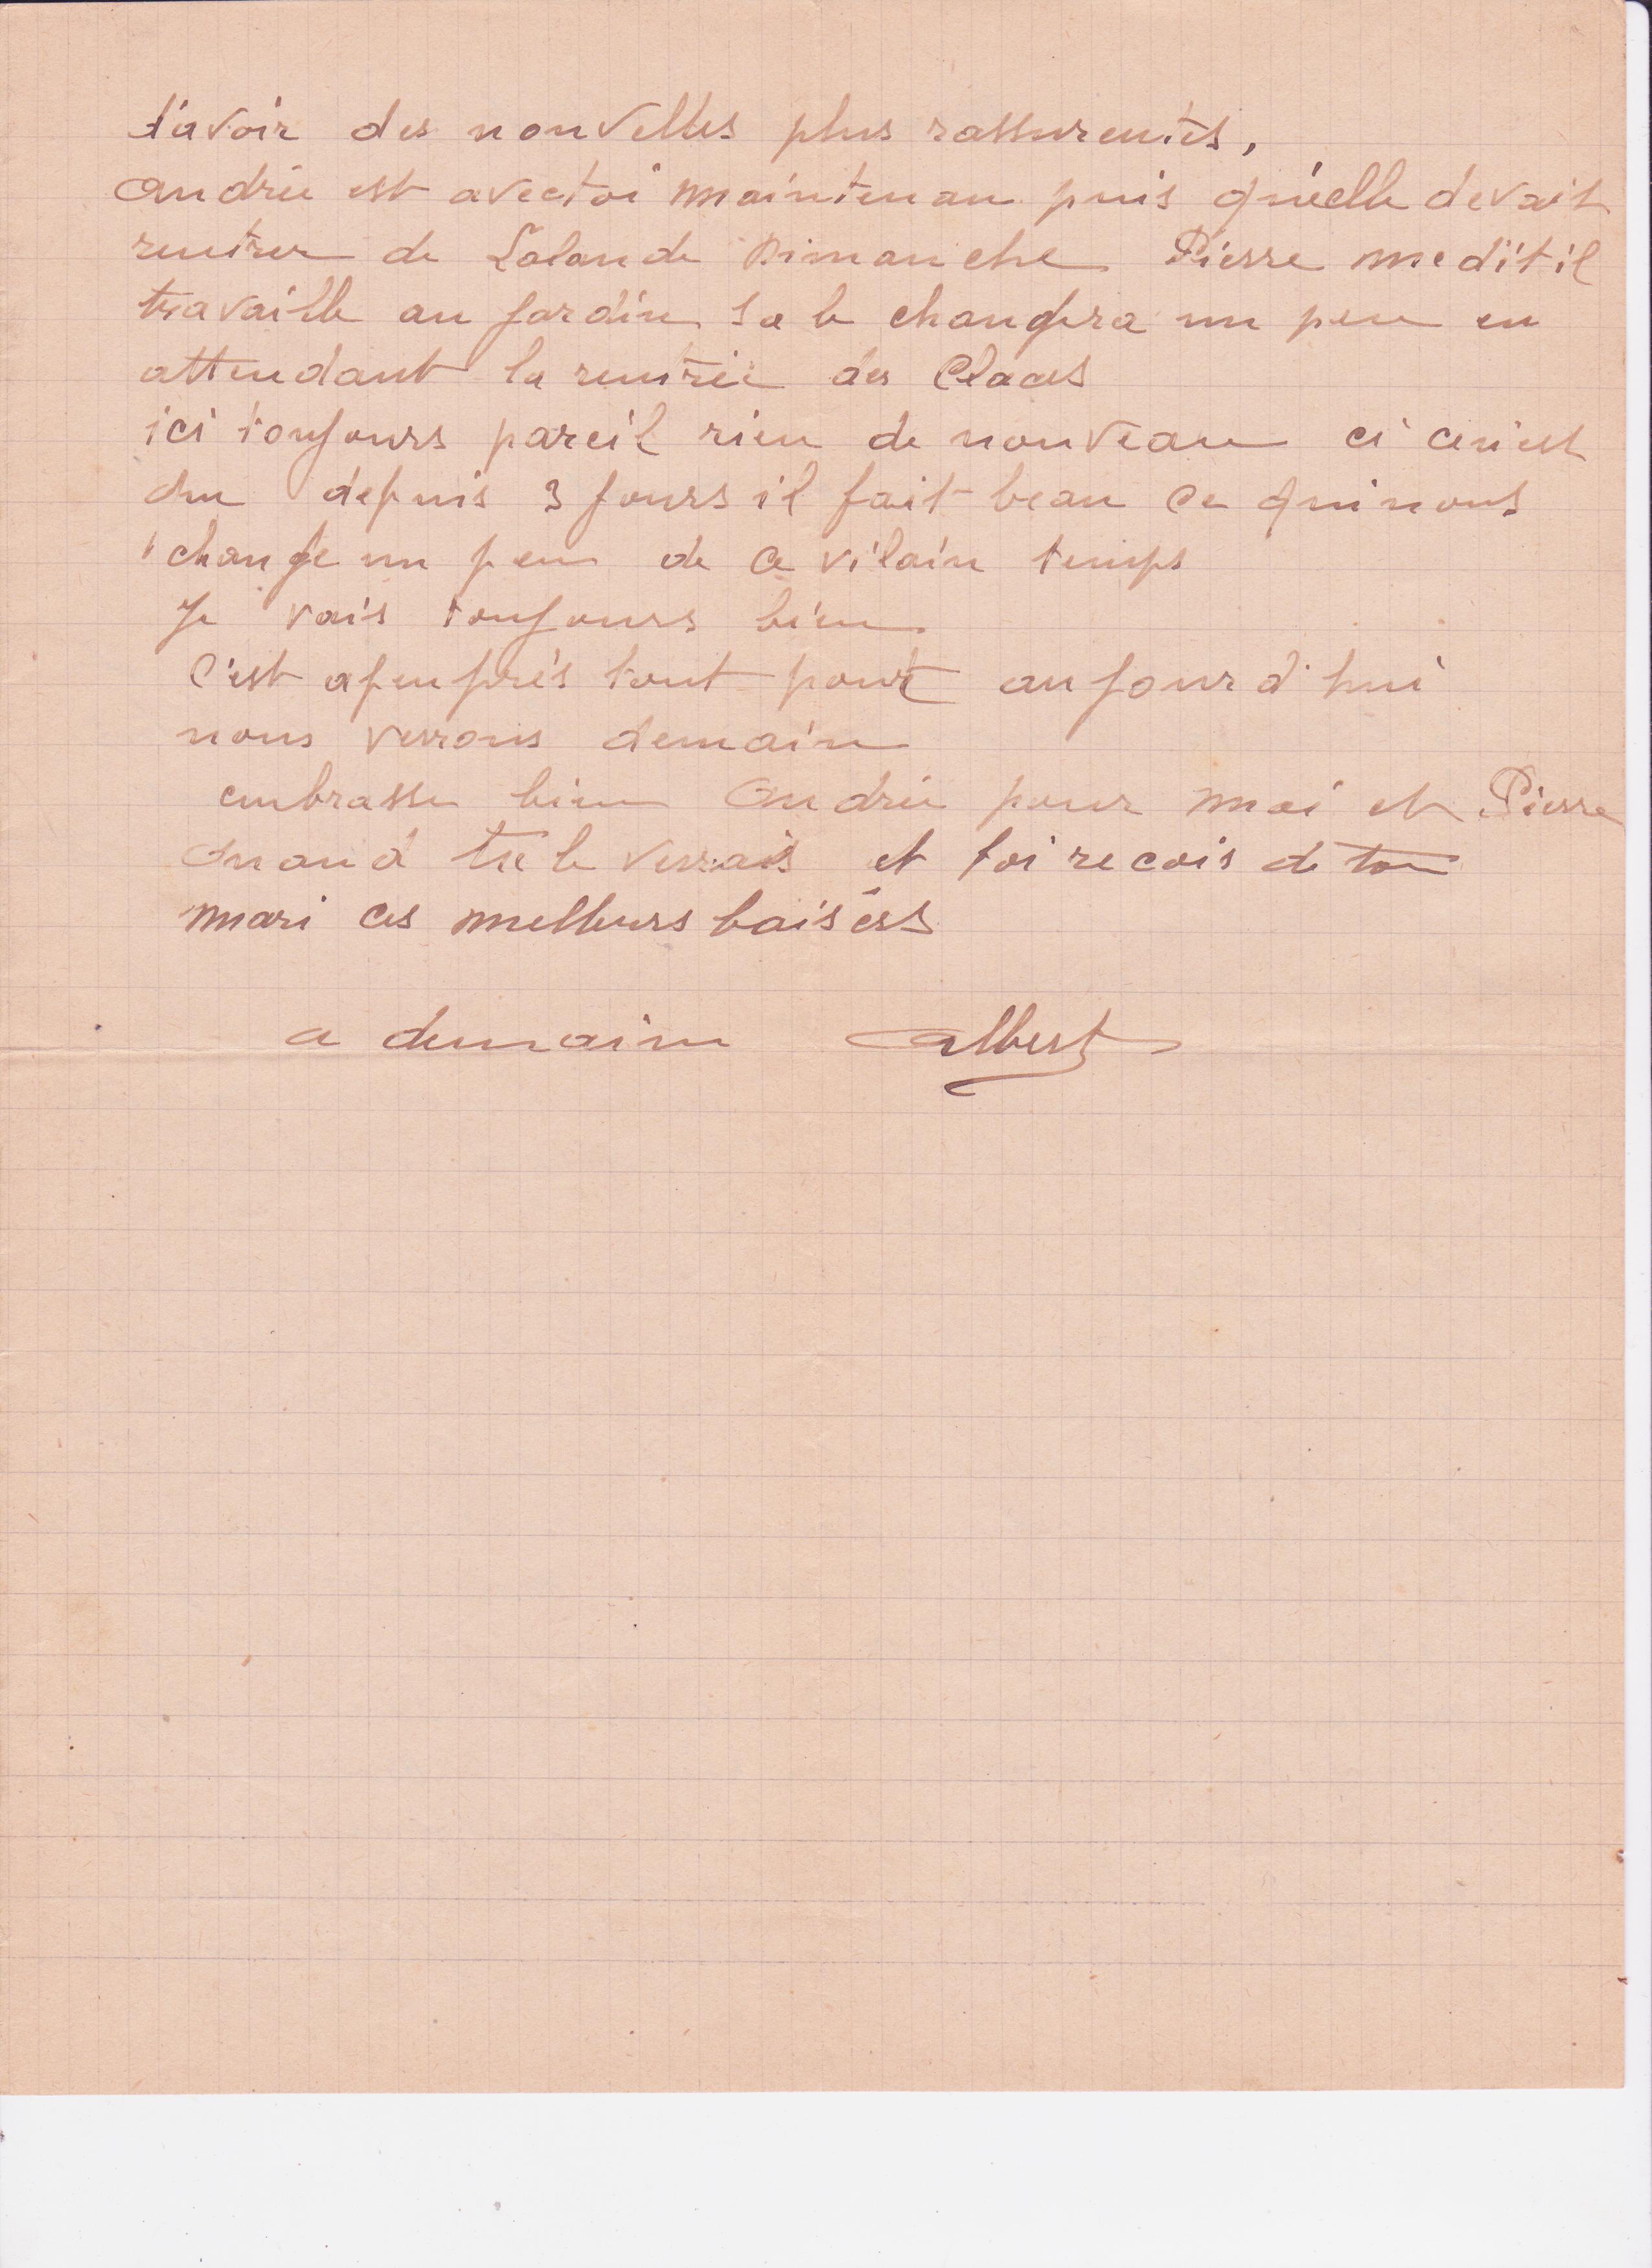 d'avoir des nouvelles plus rassurentes,
Andrée est avec toi maintenan puis qu'elle devait
rentrer de Lalande Dimanche Pierre me dit il
travaille au jardin sa le changera un peu en
attendant la rentrée des Claces
ici toujours pareil rien de nouveau ci ce n'est
que depuis 3 jours il fait beau ce qui nous
change un peu de ce vilain temps
Je vais toujours bien
C'est apeuprès tout pour aujourd'hui
nous verrons demain
embrasse bien Andrée pour moi et Pierre
Quand tu le verrais et toi recois de ton
mari ces melleurs baisers
a demain Albert